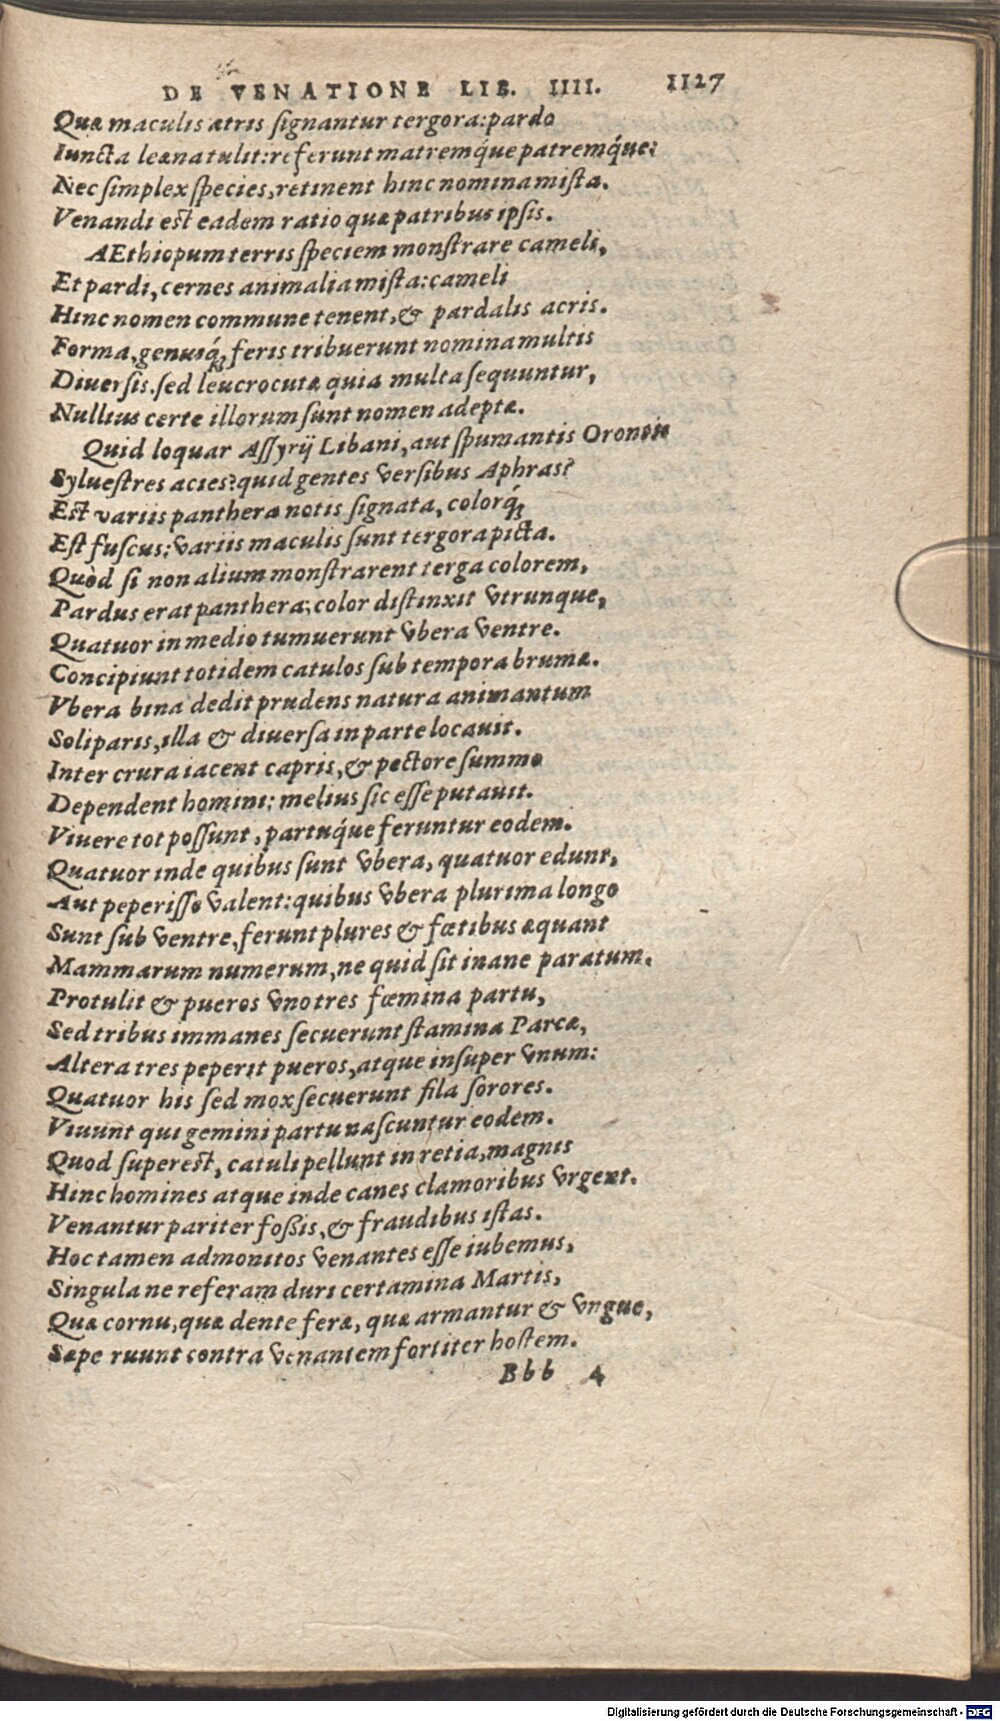 DE VENATIONE LIB. IIII. 1127
Quæ maculis atris ſignantur tergora: pardo
Iuncta leæna tulit: referunt matremq́ue patremq́ue:
Nec ſimplex ſpecies, retinent hinc nomina miſta.
Venandi eſt eadem ratio quæ patribus ipſis.
AEthiopum terris ſpeciem monſtrare cameli,
Et pardi, cernes animalia miſta: cameli
Hinc nomen commune tenent, & pardalis acris.
Forma, genuſq́; feris tribuerunt nomina multis
Diuerſis. ſed leucrocutæ quia multa ſequuntur,
Nullius certe illorum ſunt nomen adeptæ.
Quid loquar Aſſyrij Libani, aut ſpumantis Orontis
Sylueſtres acies? quid gentes verſibus Aphras?
Eſt variis panthera notis ſignata, colorq́;
Eſt fuſcus: variis maculis ſunt tergora picta.
Quòd ſi non alium monſtrarent terga colorem,
Pardus erat panthera; color diſtinxit vtrunque,
Quatuor in medio tumuerunt vbera ventre.
Concipiunt totidem catulos ſub tempora brumæ.
Vbera bina dedit prudens natura animantum
Soliparis, illa & diuerſa in parte locauit.
Inter crura iacent capris, & pectore ſummo
Dependent homini; melius ſic eſſe putauit.
Viuere tot poſſunt, partuq́ue feruntur eodem.
Quatuor inde quibus ſunt vbera, quatuor edunt,
Aut peperiſſe valent: quibus vbera plurima longo
Sunt ſub ventre, ferunt plures & fœtibus æquant
Mammarum numerum, ne quid ſit inane paratum.
Protulit & pueros vno tres fœmina partu,
Sed tribus immanes ſecuerunt ſtamina Parcæ,
Altera tres peperit pueros, atque inſuper vnum:
Quatuor his ſed mox ſecuerunt fila ſorores.
Viuunt qui gemini partu naſcuntur eodem.
Quod ſupereſt, catuli pellunt in retia, magnis
Hinc homines atque inde canes clamoribus vrgent.
Venantur pariter foßis, & fraudibus iſtas.
Hoc tamen admonitos venantes eſſe iubemus,
Singula ne referam duri certamina Martis,
Quæ cornu, quæ dente feræ, quæ armantur & vngue,
Sæpe ruunt contra venantem fortiter hoſtem.
Bbb 4
Digitalisierung gefördert durch die Deutsche Forschungsgemeinschaft - DFG